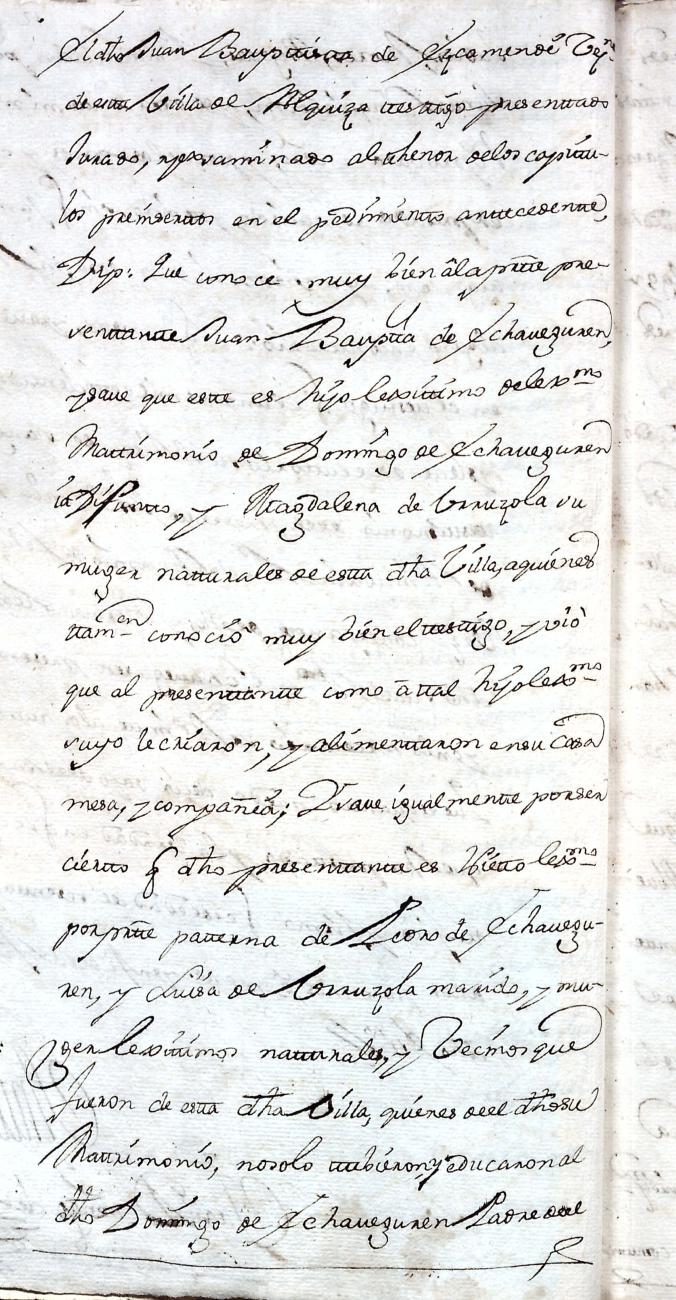 El dho Juan Bauptista de Ezcamende Vez.no
de esta Villa de Alquiza testigo presenttado
Jurado, y exsaminado al thenor delos capitu-
los preinsertos en el pedimiento antecedente,
Dixo: Que conoce muy bien âla pntte pre-
senttante Juan Bauptta de Echaveguren,
y save que este es hijo lexitimo de lexmo
Mattrimonio de Domingo de Echaveguren
ia Difunto, y Magdalena de Urruzola su
muger natturales de esta dha Villa, aquienes
ttamen conociò muy bien el testtigo, y viò
que al presenttante como â ttal hijo lexmo
suyo lecriaron, y alimenttaron ensu Casa
mesa, y compañia; Y save igualmentte porser
cierto q dho presenttante es Nietto lexmo
por prtte patterna de Pedro de Echavegu-
ren, y Luisa de Urruzola marido, y mu-
ger lexittimos natturales, y Vecinos que
fueron de esta dha Villa, quienes de el dho su
Mattrimonio, nosolo ttubieron, y educaron al
dho Domingo de Echaveguren Padre de el